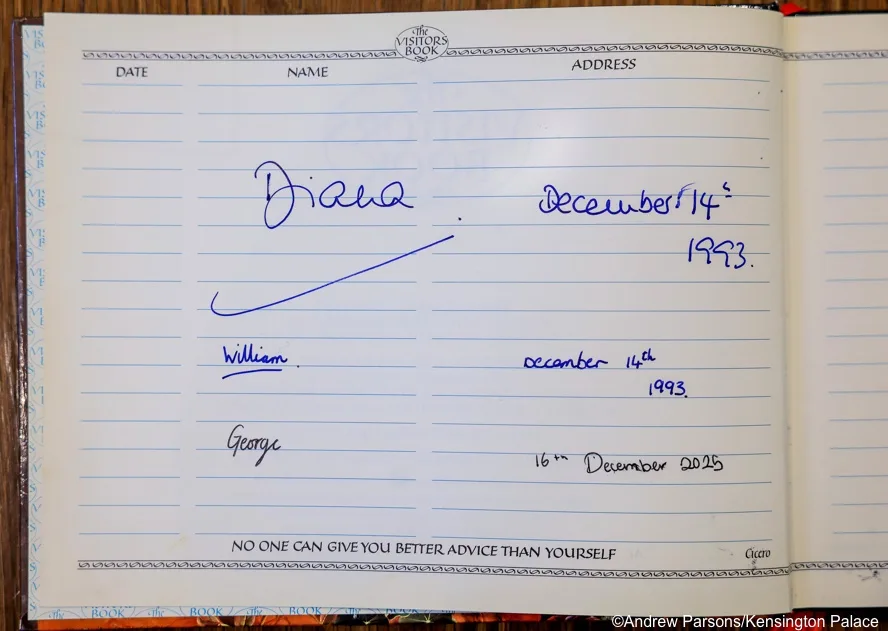 The
VISITORS
BOOK
DATE NAME ADDRESS
Diana December 14th
1993.
William. December 14th
1993.
George 16th December 2025
NO ONE CAN GIVE YOU BETTER ADVICE THAN YOURSELF Cicero
The BOOK The BOOK The BOOK The
©Andrew Parsons/Kensington Palace